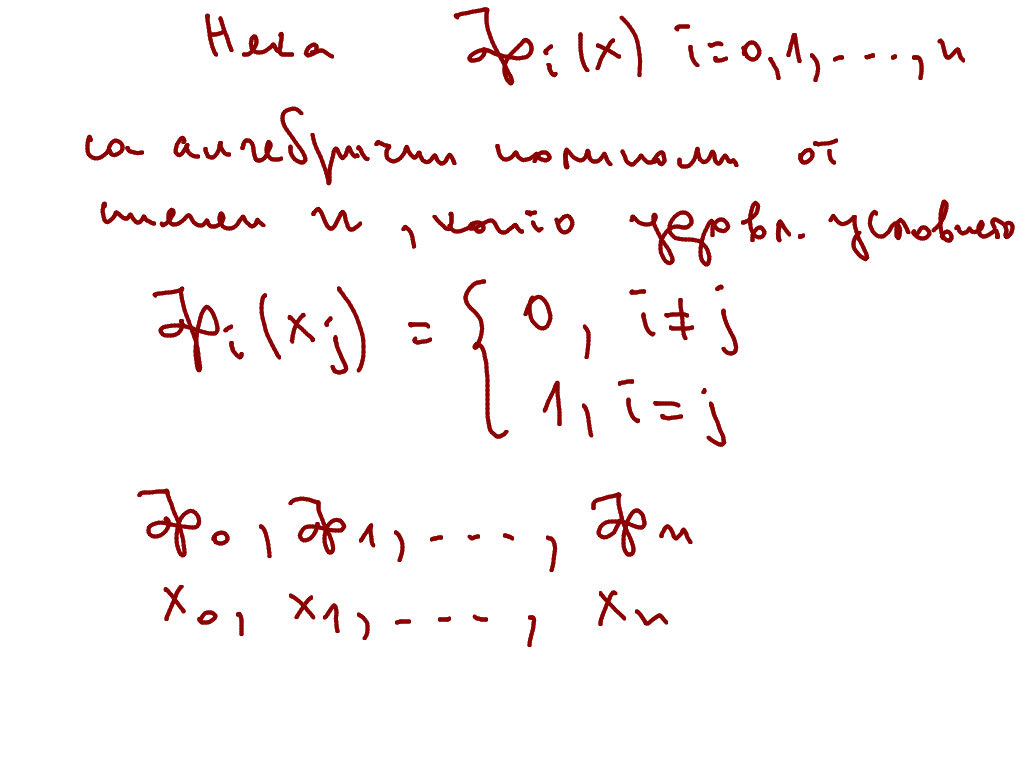 Нека φ̄ᵢ(x) i=0,1,....,n
са алгебрични полиноми от
степен n, които удовл. условието
φ̄ᵢ(xⱼ) = { 0, i≠j
1, i=j
φ̄₀, φ̄₁, ...., φ̄ₙ
x₀, x₁, ...., xₙ